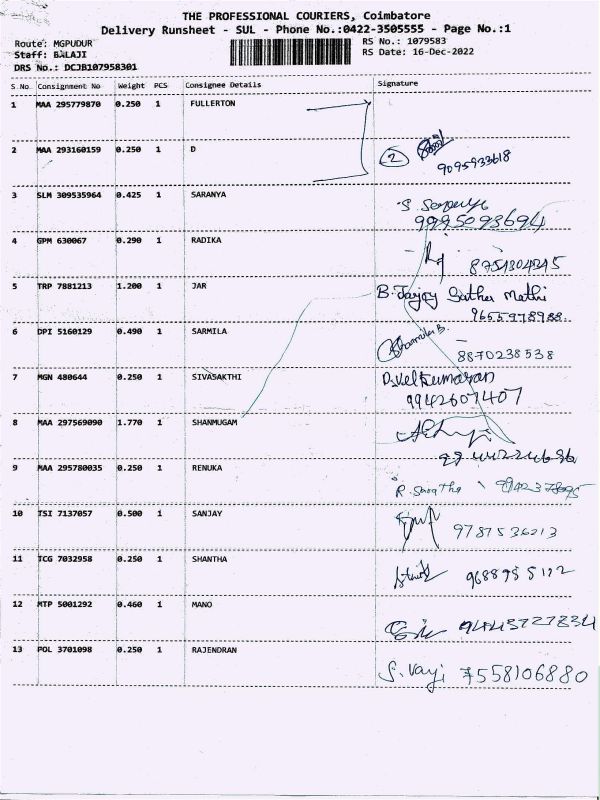 THE PROFESSIONAL COURIERS, Coimbatore
Delivery Runsheet - SUL - Phone No.:0422-3505555 - Page No.:1
Route: MGPUDUR RS No.: 1079583
Staff: BALAJI RS Date: 16-Dec-2022
DRS No.: DCJB107958301
S.No. Consignment No Weight PCS Consignee Details Signature
1 MAA 295779870 0.250 1 FULLERTON
2 MAA 293160159 0.250 1 D 2
9095933618
3 SLM 309535964 0.425 1 SARANYA S. Saranya
9995093694
4 GPM 630067 0.290 1 RADIKA
8754304345
5 TRP 7881213 1.200 1 JAR B. Sather Mathi
9655978988
6 DPI 5160129 0.490 1 SARMILA
8870238538
7 MGN 480644 0.250 1 SIVASAKTHI D. Velkumaran
9942607407
8 MAA 297569090 1.770 1 SHANMUGAM
9 MAA 295780035 0.250 1 RENUKA R.
10 TSI 7137057 0.500 1 SANJAY 9787536213
11 TCG 7032958 0.250 1 SHANTHA 9688955122
12 MTP 5001292 0.460 1 MANO 9444
13 POL 3701098 0.250 1 RAJENDRAN S. Vayi 7558106880